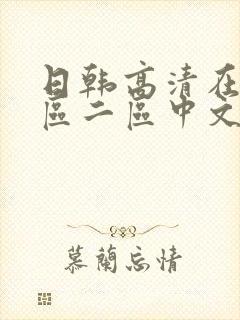 日韩高清在
區二區中文
慕蘭忘情